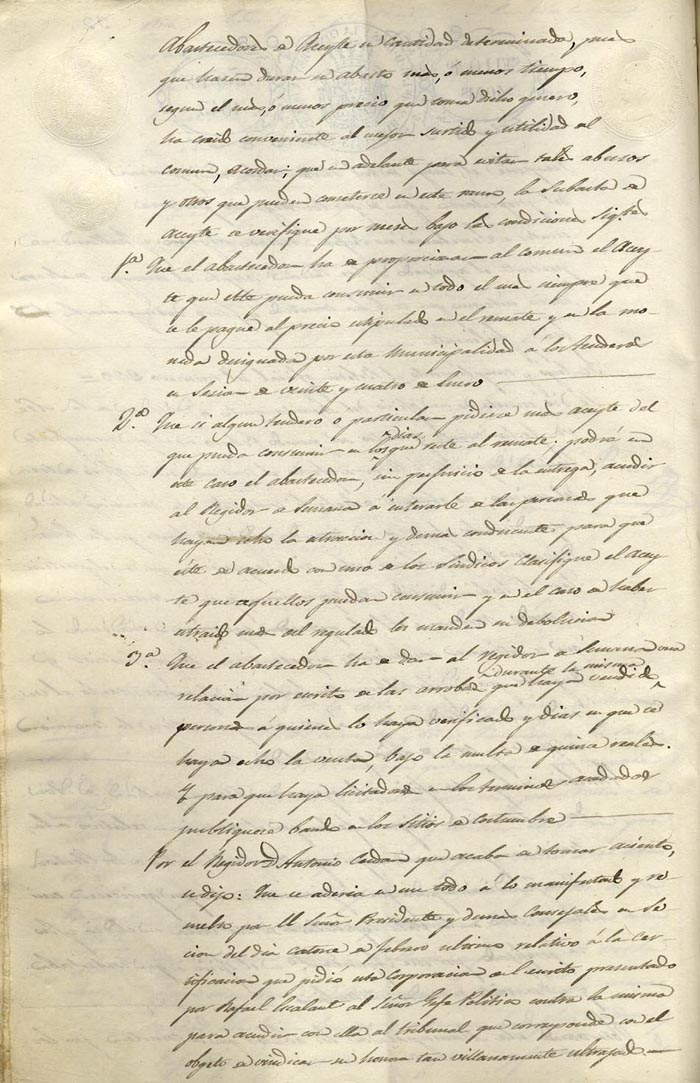 Abastecedores de Aceyte en cantidad determinada, pues
que hacen durar su abasto mas, o menos tiempo,
segun el mas, ó menos precio que toma dicho genero,
ha creido conveniente al mejor surtido y utilidad al
comun, acordar; que en adelante para evitar tales abusos
y otros que pueden cometerse en este ramo, la Subasta de
aceyte se verifique por meses bajo las condiciones sigtes
1.a Que el abastecedor ha de proporcionar al comun el Acey-
te que este pueda consumir en todo el mes siempre que
se le pague al precio estipulado en el remate y en la mo-
neda designada por esta Municipalidad á los tenderos
en Sesion de veinte y cuatro de Enero
2.a Que si algun tendero ó particular pidiere mas aceyte del
que pueda consumir en los dias que reste al remate, podrá en
este caso el abastecedor, sin perjuicio de la entrega, acudir
al Regidor de Semana á enterarle de las personas que
hayan echo la atraccion y demas conducente para que
éste de acuerdo con uno de los Sindicos clasifique el Acey-
te que aquellos puedan consumir y en el caso de haber
atraido mas del regulado les manden su debolucion
3.a Que el abastecedor ha de dar al Regidor de Semana una
relacion por escrito de las arrobas que haya vendido durante la misma,
personas á quienes lo haya verificado y dias en que se
haya echo la venta, bajo la multa de quince reales.
Y para que haya licitadores en los terminos acordados
publiquese bando en los sitios de costumbre
Por el Regidor D. Antonio Cerdan que acaba de tomar asiento,
se dijo: Que se aderia en un todo á lo manifestado y re-
suelto por el Señor Presidente y demas Consejales en Se-
cion del dia catorce de febrero ultimo relativo á la cer-
tificacion que pidió esta Corporacion del escrito presentado
por Rafael Escalant al Señor Gefe Politico contra la misma
para acudir con ella al tribunal que corresponde con el
obgeto de vindicar su honor tan villanamente ultrajado